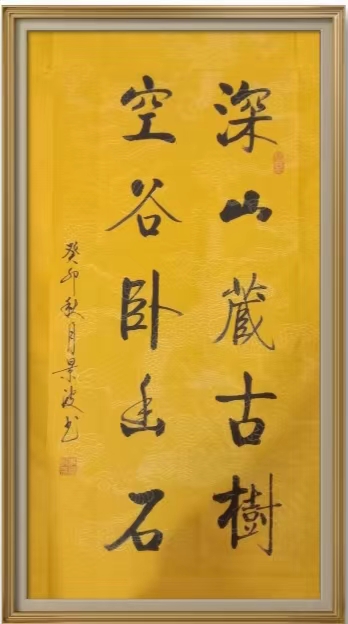 深山藏古樹
空谷卧幽石
癸卯秋月景波书